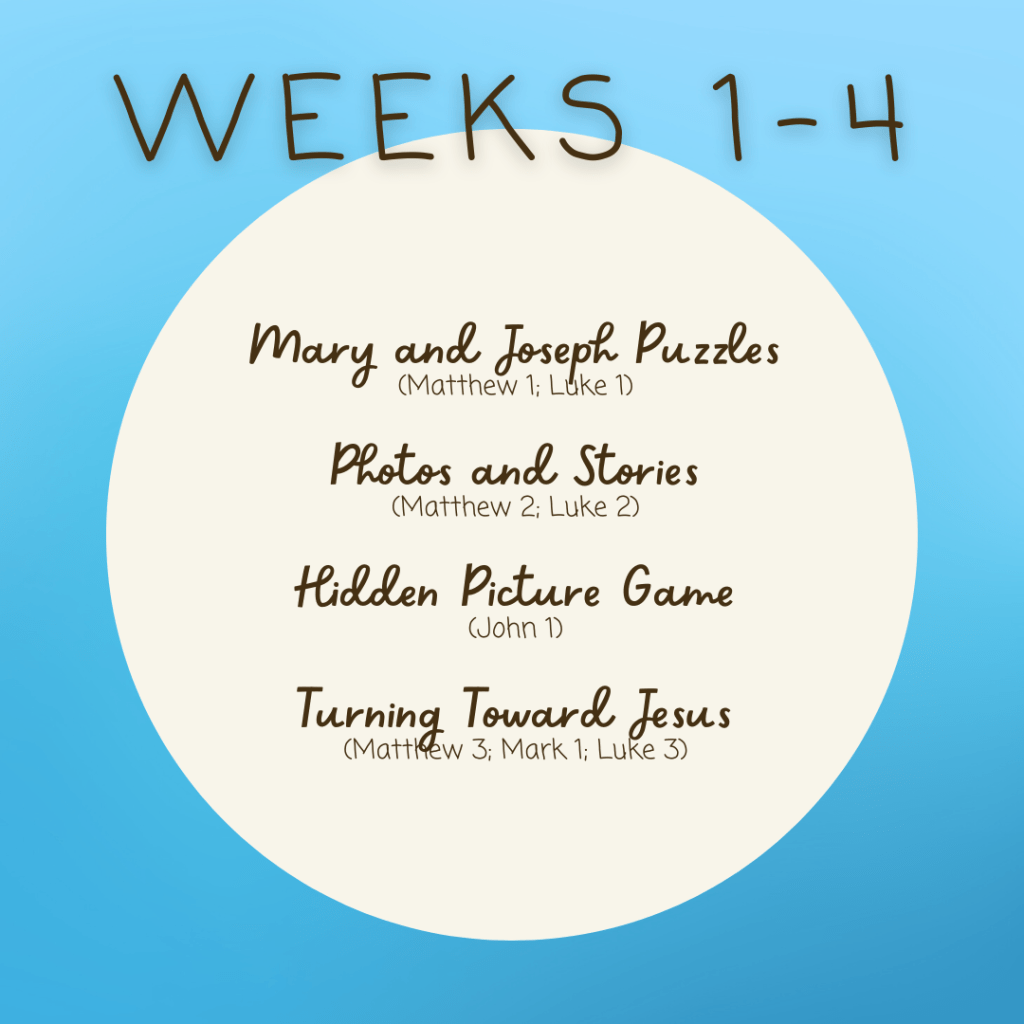 WEEKS 1-4
Mary and Joseph Puzzles
(Matthew 1; Luke 1)
Photos and Stories
(Matthew 2; Luke 2)
Hidden Picture Game
(John 1)
Turning Toward Jesus
(Matthew 3; Mark 1; Luke 3)